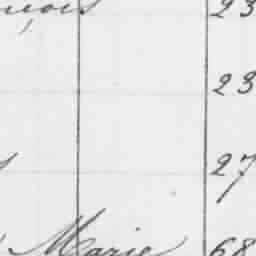 23
23
27
Marie 68